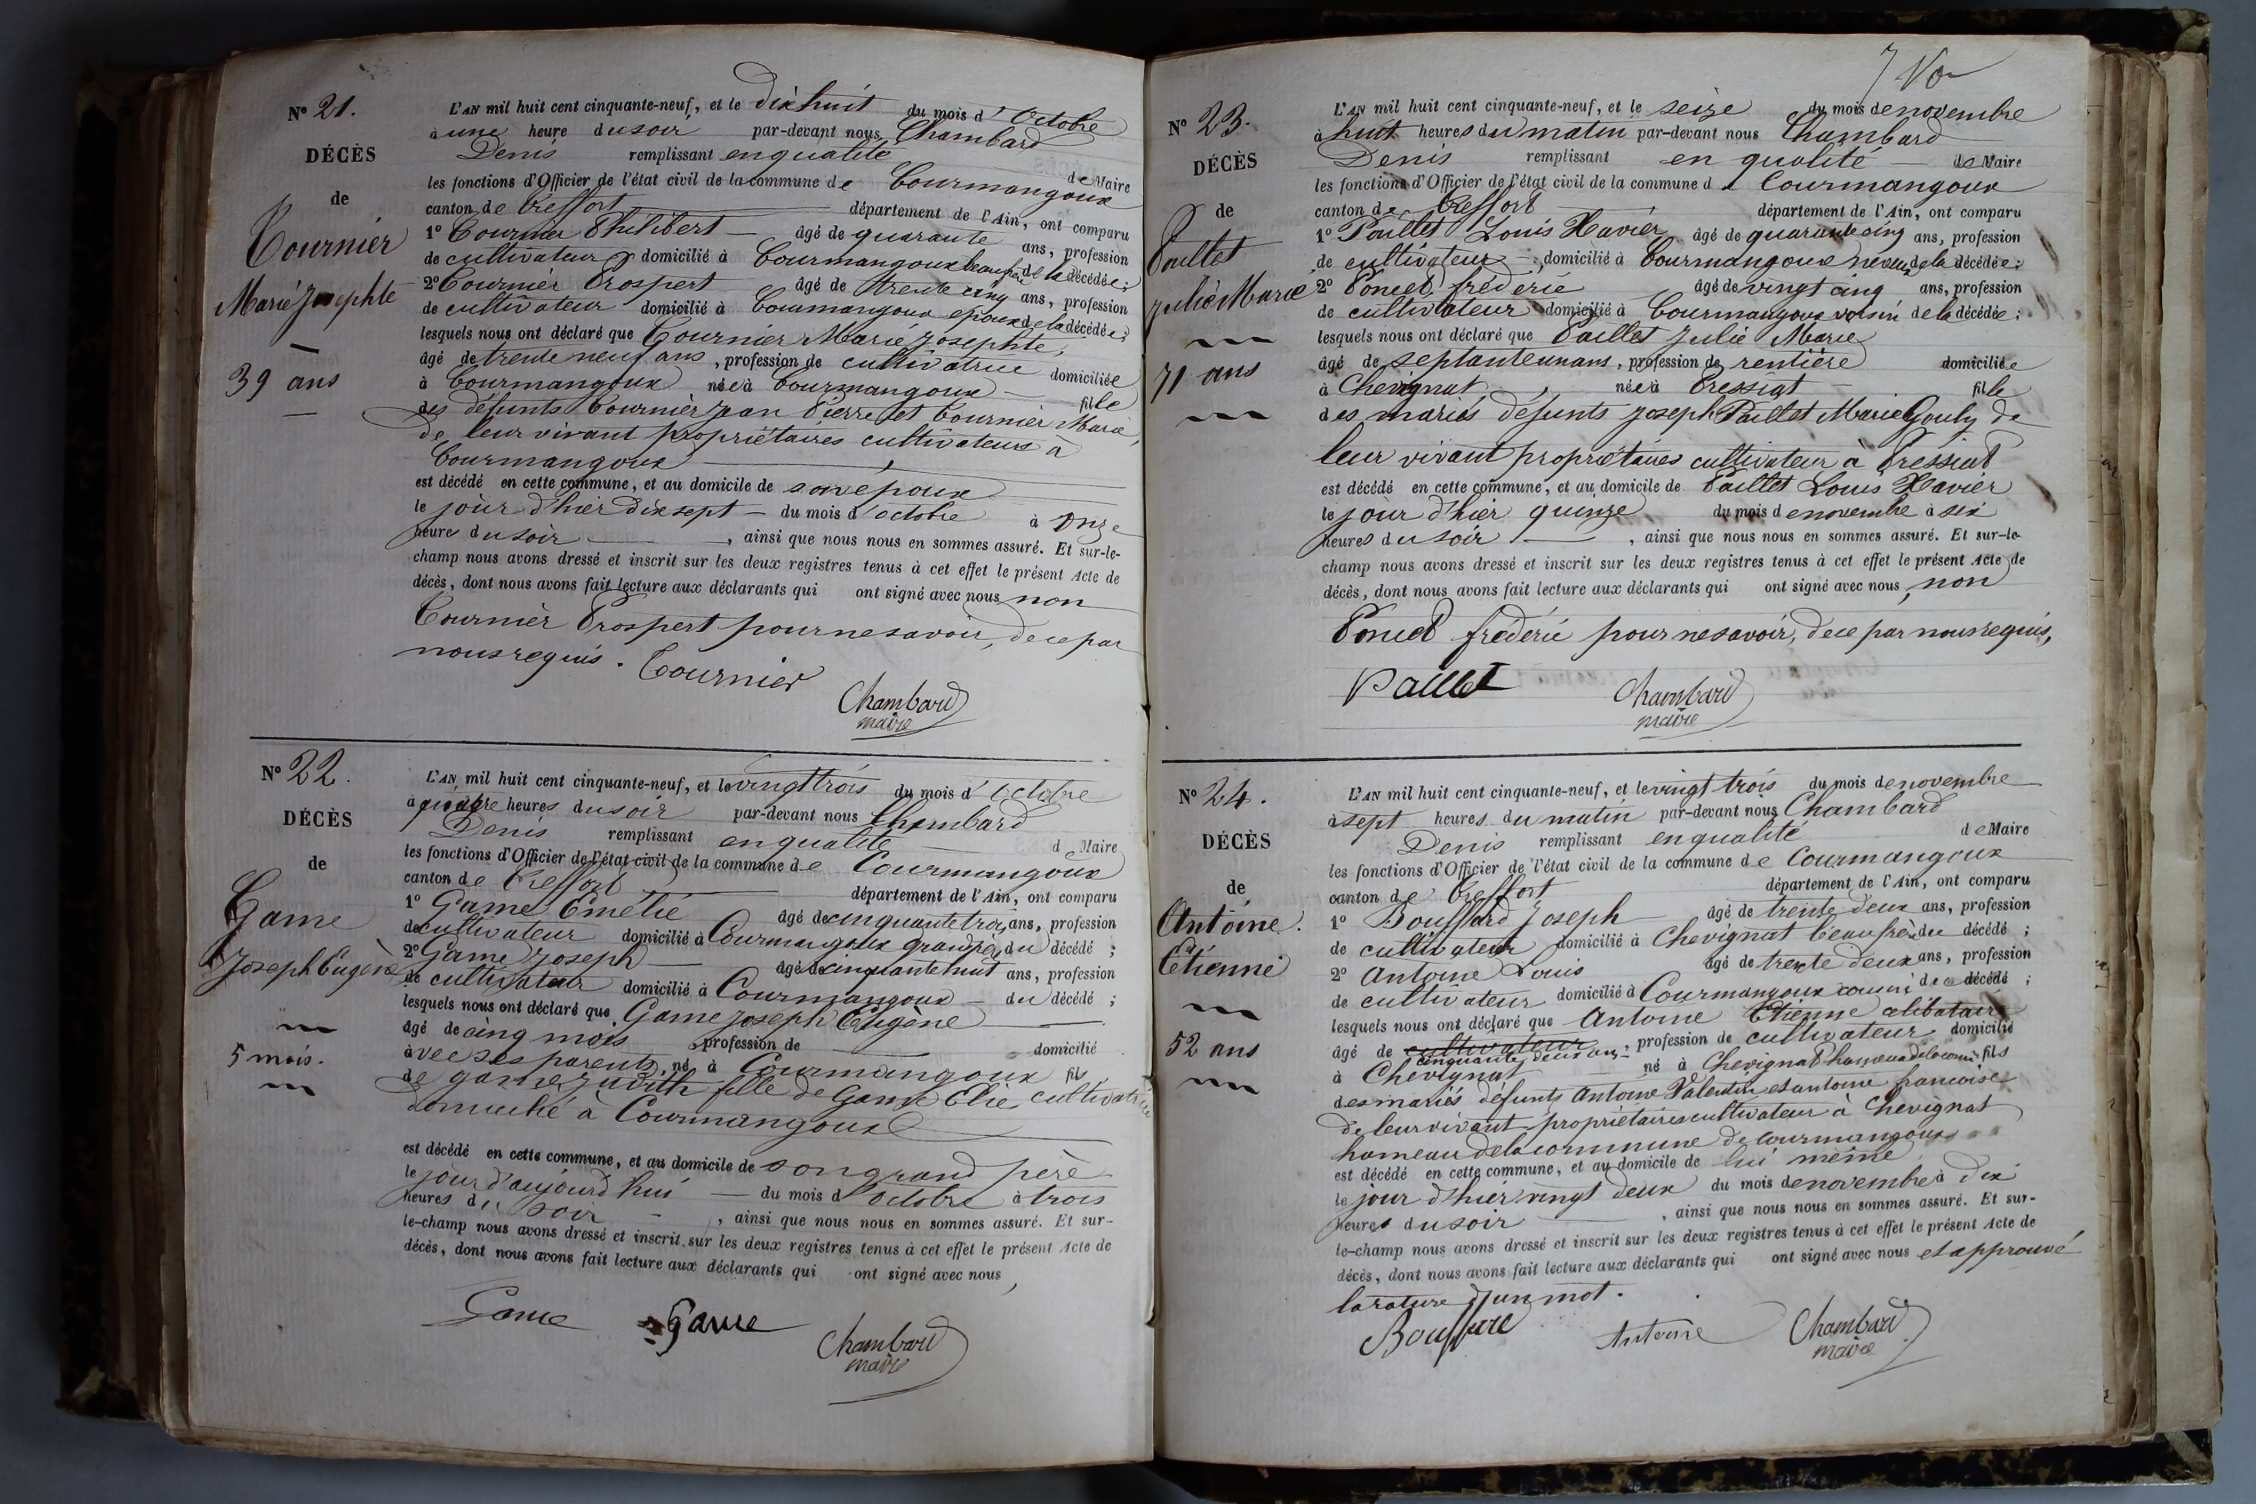 N° 21.
DÉCÈS
de
Tournier
Marie Josephte
39 ans
L'AN mil huit cent cinquante-neuf, et le dix huit du mois d'Octobre
à une heure du soir par-devant nous Chambard
Denis remplissant en qualité de Maire
les fonctions d'Officier de l'état civil de la commune de Courmangoux
canton de Treffort département de l'Ain, ont comparu
1° Tournier Philibert âgé de quarante ans, profession
de cultivateur domicilié à Courmangoux beaufrère de la décédée;
2° Tournier Prospert âgé de trente cinq ans, profession
de cultivateur domicilié à Courmangoux epoux de la décédée;
lesquels nous ont déclaré que Tournier Marie Josephte,
âgé de trente neuf ans, profession de cultivatrice domiciliée
à Courmangoux née à Courmangoux fille
des défunts Tournier jean Pierre et Tournier Marie,
de leur vivant propriétaires cultivateurs à
Courmangoux
est décédé en cette commune, et au domicile de son époux
le jour d'hier dix sept du mois d'octobre à onze
heures du soir, ainsi que nous nous en sommes assuré. Et sur-le-
champ nous avons dressé et inscrit sur les deux registres tenus à cet effet le présent Acte de
décès, dont nous avons fait lecture aux déclarants qui ont signé avec nous, non
Tournier Prospert pour ne savoir, de ce par
nous requis. Tournier
Chambard
maire
N° 22.
DÉCÈS
de
Game
Joseph Eugène
5 mois.
L'AN mil huit cent cinquante-neuf, et le vingt trois du mois d'Octobre
à quatre heures du soir par-devant nous Chambard
Denis remplissant en qualité d Maire
les fonctions d'Officier de l'état civil de la commune de Courmangoux
canton de Treffort département de l'Ain, ont comparu
1° Game Emélie âgé de cinquante trois ans, profession
de cultivateur domicilié à Courmangoux grand père du décédé;
2° Game Joseph âgé de cinquante huit ans, profession
de cultivateur domicilié à Courmangoux du décédé;
lesquels nous ont déclaré que Game Joseph Eugène
âgé de cinq mois profession de domicilié
avec ses parents, né à Courmangoux fils
de game judith fille de Game Elie cultivatrice
domicilié à Courmangoux
est décédé en cette commune, et au domicile de son grand père
le jour d'aujourd'hui du mois d'octobre à trois
heures du soir, ainsi que nous nous en sommes assuré. Et sur-
le-champ nous avons dressé et inscrit sur les deux registres tenus à cet effet le présent Acte de
décès, dont nous avons fait lecture aux déclarants qui ont signé avec nous,
Game Game
Chambard
maire
N° 23.
DÉCÈS
de
Paillet
julie Marie
71 ans
L'AN mil huit cent cinquante-neuf, et le seize du mois de novembre
à huit heures du matin par-devant nous Chambard
Denis remplissant en qualité de Maire
les fonctions d'Officier de l'état civil de la commune d Courmangoux
canton de Treffort département de l'Ain, ont comparu
1° Paillet Louis Xavier âgé de quarante cinq ans, profession
de cultivateur, domicilié à Courmangoux neveu de la décédée;
2° Poncet fréderic âgé de vingt cinq ans, profession
de cultivateur domicilié à Courmangoux voisin de la décédée;
lesquels nous ont déclaré que Paillet julie Marie
âgé de septante un ans, profession de rentière domiciliée
à Chevignat, née à Pressiat fille
des mariés défunts joseph Paillet Marie Gouly de
leur vivant propriétaires cultivateur à Pressiat
est décédé en cette commune, et au domicile de Paillet Louis Xavier
le jour d'hier quinze du mois de novembre à six
heures du soir, ainsi que nous nous en sommes assuré. Et sur-le-
champ nous avons dressé et inscrit sur les deux registres tenus à cet effet le présent Acte de
décès, dont nous avons fait lecture aux déclarants qui ont signé avec nous, non
Poncet fréderic pour ne savoir, de ce par nous requis,
Paillet
Chambard
maire
N° 24.
DÉCÈS
de
Antoine.
Etienne
52 ans
L'AN mil huit cent cinquante-neuf, et le vingt trois du mois de novembre
à sept heures du matin par-devant nous Chambard
Denis remplissant en qualité de Maire
les fonctions d'Officier de l'état civil de la commune de Courmangoux
canton de Treffort département de l'Ain, ont comparu
1° Bouffard Joseph âgé de trente deux ans, profession
de cultivateur domicilié à Chevignat beau frère du décédé;
2° Antoine Louis âgé de trente deux ans, profession
de cultivateur domicilié à Courmangoux cousin de décédé;
lesquels nous ont déclaré que Antoine Etienne célibataire
âgé de cultivateur, profession de cultivateur domicilié
cinquante deux ans
à Chevignat né à Chevignat hameau de la comm. fils
des mariés défunts Antoine Valentin et antoine francoise
de leur vivant propriétaires cultivateur à Chevignat
hameau de la commune de Courmangoux
est décédé en cette commune, et au domicile de lui même
le jour d'hier vingt deux du mois de novembre à dix
heures du soir, ainsi que nous nous en sommes assuré. Et sur-
le-champ nous avons dressé et inscrit sur les deux registres tenus à cet effet le présent Acte de
décès, dont nous avons fait lecture aux déclarants qui ont signé avec nous et approuvé
la rature d'un mot.
Bouffard Antoine Chambard
maire